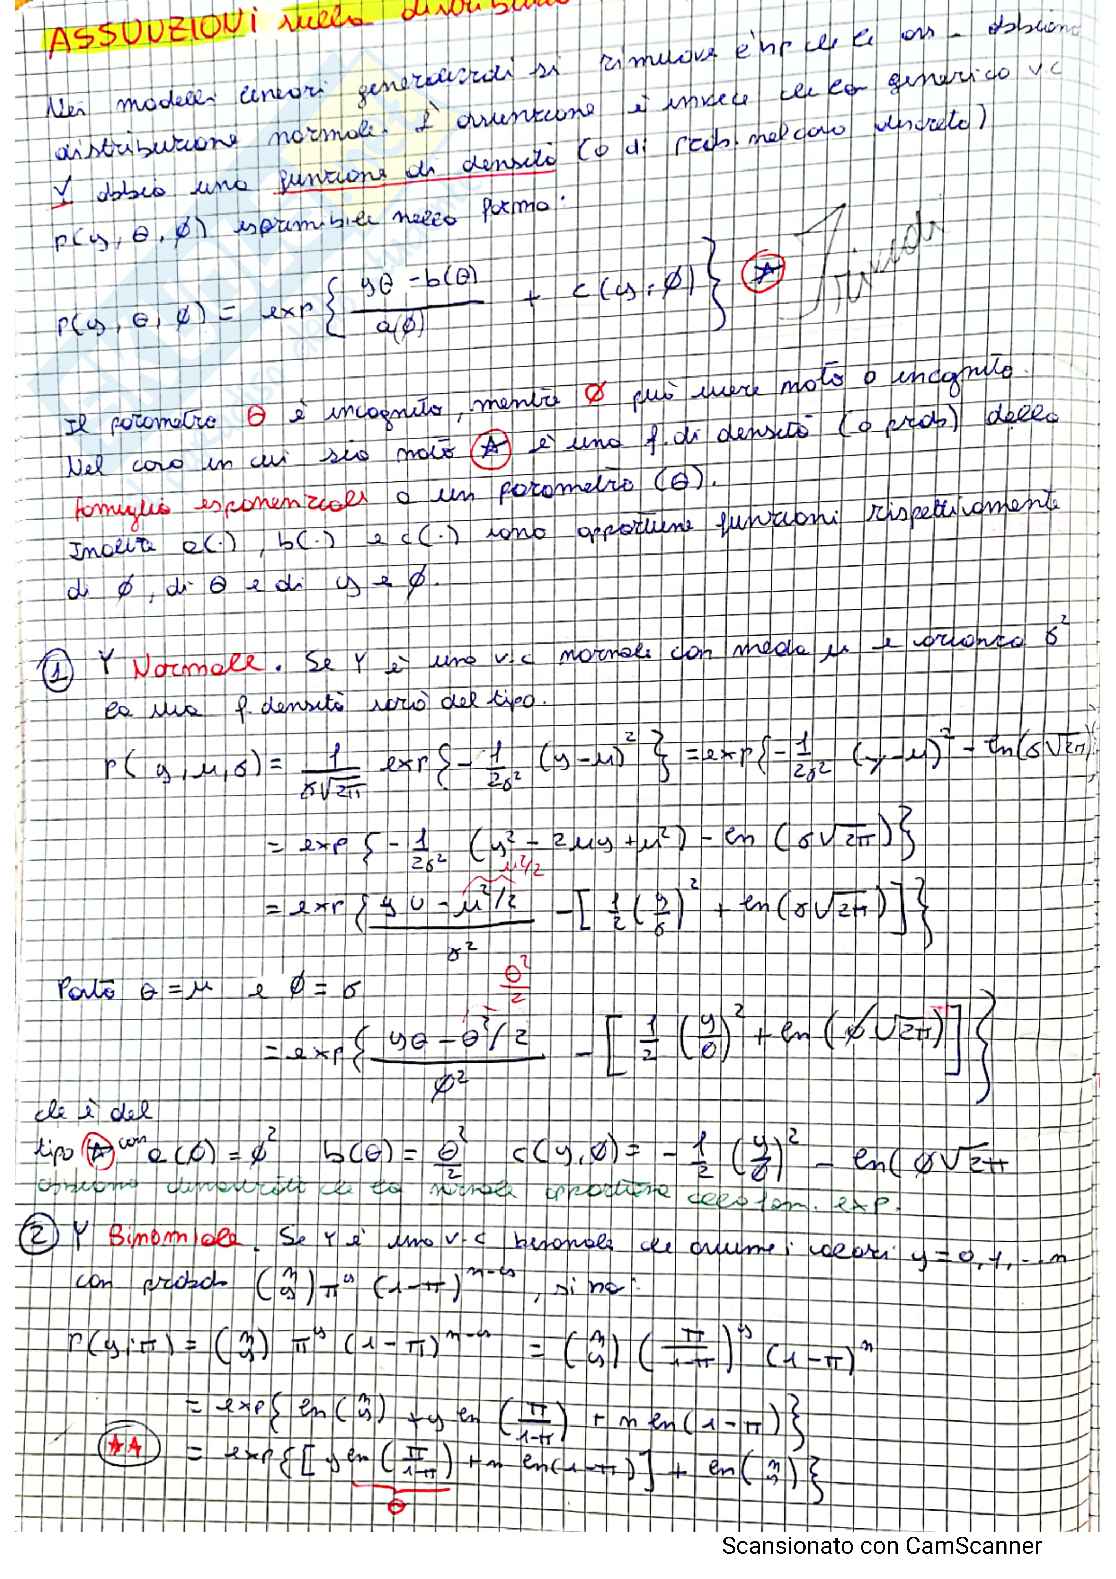 ASSUNZIONI sulla distribuzione
Nei modelli lineari generalizzati si rimuove l'hp che le oss. abbiano
distribuzione normale. L'assunzione è invece che la generica vc
Y abbia una funzione di densità (o di prob. nel caso discreto)
p(y, θ, φ) esprimibile nella forma:
p(y, θ, φ) = exp { (yθ - b(θ)) / a(φ) + c(y, φ) } ☆
Il parametro θ è incognito, mentre φ può essere noto o incognito.
Nel caso in cui sia noto ☆ è una f. di densità (o prob) della
famiglia esponenziale a un parametro (θ).
Inoltre a(·), b(·) e c(·) sono opportune funzioni rispettivamente
di φ, di θ e di y e φ.
① Y Normale. Se Y è una v.c normale con media μ e varianza σ²
la sua f. densità sarà del tipo.
p(y, μ, σ) = 1/(σ√2π) exp{ -1/2σ² (y-μ)² } = exp{ -1/2σ² (y-μ)² - ln(σ√2π)}
= exp { -1/2σ² (y² - 2μy + μ²) - ln (σ√2π)}
μ²/2
= exp { (yμ - μ²/2) / σ² - [ 1/2 (y/σ)² + ln(σ√2π) ] }
Posto θ = μ e φ = σ
θ²/2
= exp{ (yθ - θ²/2) / φ² - [ 1/2 (y/φ)² + ln (φ√2π) ] }
che è del
tipo ☆ con a(φ) = φ² b(θ) = θ²/2 c(y,φ) = - 1/2 (y/φ)² - ln(φ√2π
abbiamo dimostrato che la normale appartiene alla fam. exp.
② Y Binomiale. Se Y è una v.c binomiale che assume i valori y = 0, 1, ... n
con probab (n y) π^y (1-π)^n-y, si ha:
p(y; π) = (n y) π^y (1-π)^n-y = (n y) (π/1-π)^y (1-π)^n
= exp{ ln (n y) + y ln (π/1-π) + n ln(1-π) }
☆☆ = exp{ [ y ln (π/1-π) + n ln(1-π) ] + ln (n y) }
θ
Scansionato con CamScanner